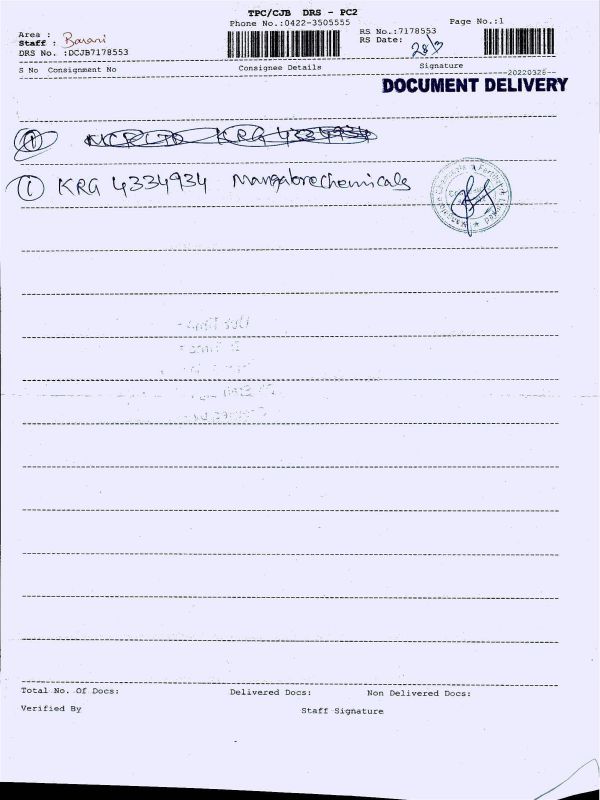 TPC/CJB DRS - PC2
Phone No.:0422-3505555
Page No.:1
Area :
Staff : Barani
DRS No. :DCJB7178553
RS No.:7178553
RS Date: 28/3
S No Consignment No Consignee Details Signature
--20220328--
DOCUMENT DELIVERY
① KRG 4334934
① KRG 4334934 Mangalorechemicals
Total No. Of Docs: Delivered Docs: Non Delivered Docs:
Verified By Staff Signature